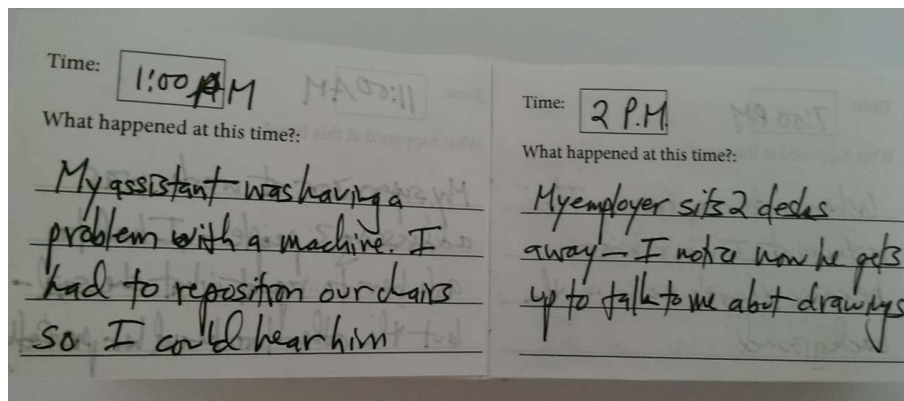 Time: 1:00 PM
What happened at this time?:
My assistant was having a
problem with a machine. I
had to reposition our chairs
so I could hear him
Time: 2 P.M.
What happened at this time?:
My employer sits 2 desks
away – I notice now he gets
up to talk to me about drawings